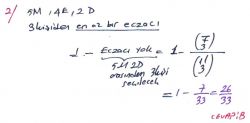 2/ 5M, 4E, 2D
3 kişiden en az bir eczacı
1 - Eczacı yok = 1 - (7 3) / (11 3)
5M 2D
arasından 3 kişi
seçilecek
= 1 - 7/33 = 26/33
CEVAP: B